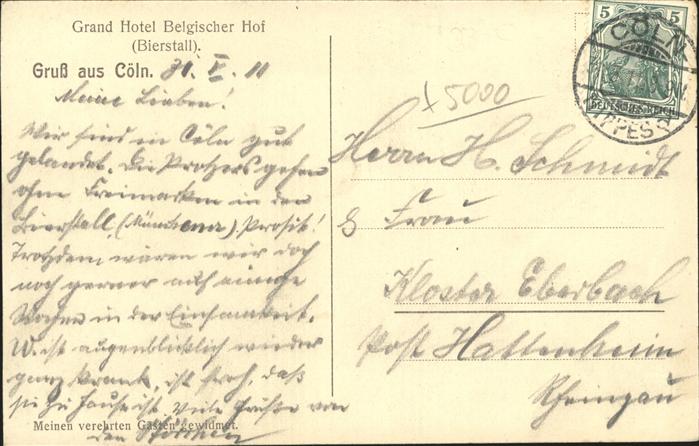 Grand Hotel Belgischer Hof
(Bierstall).
Gruß aus Cöln. 31. V. 11
Meine Lieben!
Wir sind in Cöln gut
gelandet. Die Protzers gehen
ohne Freimarken in den
Bierstall (Münchener). Prosit!
Trotzdem wären wir doch
noch gerner auf einige
Wochen in der Einsamkeit.
W. ist augenblicklich wieder
ganz krank, ist froh, daß
sie zu Hause ist. Viele Grüße von
den
Meinen verehrten Gästen gewidmet.
x 5000
Herrn H. Schmidt
& Frau
Kloster Eberbach
Post Hattenheim
Rheingau
5 5
DEUTSCHES REICH
CÖLN